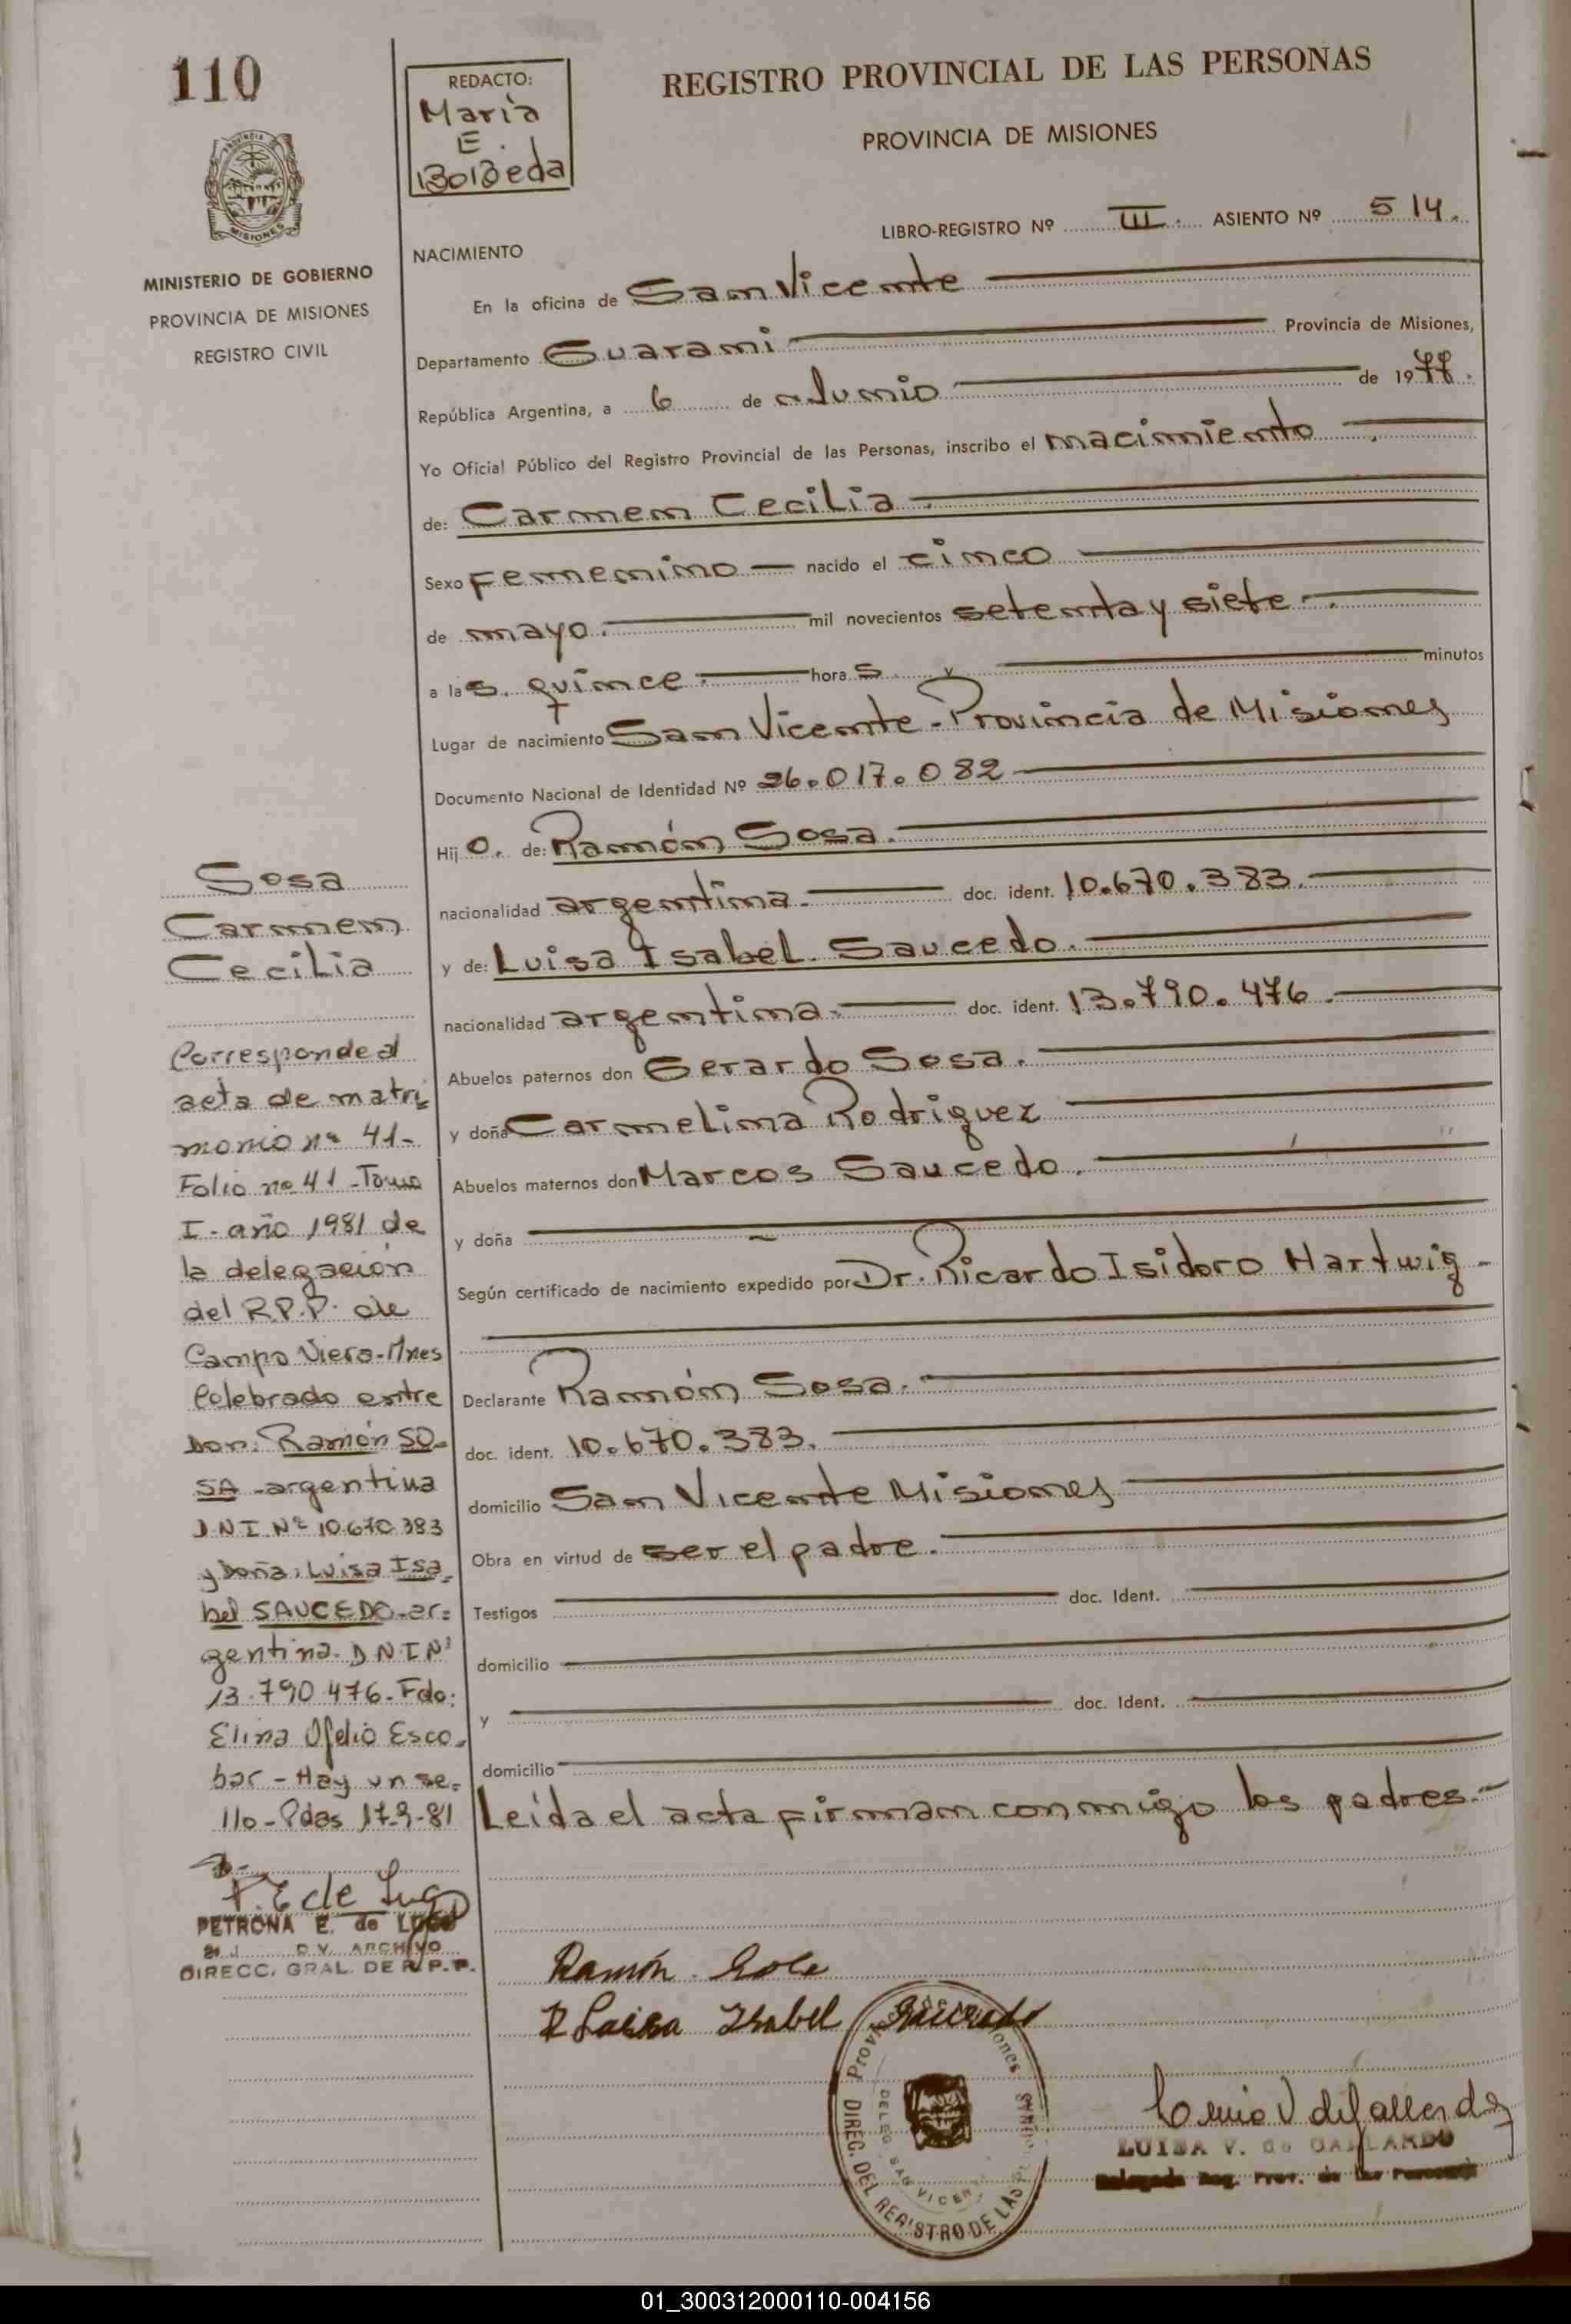 110
REDACTO:
Maria
E.
BoBeda
REGISTRO PROVINCIAL DE LAS PERSONAS
PROVINCIA DE MISIONES
PROVINCIA
MISIONES
MINISTERIO DE GOBIERNO
PROVINCIA DE MISIONES
REGISTRO CIVIL
LIBRO-REGISTRO Nº III. ASIENTO Nº 514.
NACIMIENTO
En la oficina de San Vicente
Departamento Guarani Provincia de Misiones,
República Argentina, a 6 de Junio de 1977.
Yo Oficial Público del Registro Provincial de las Personas, inscribo el nacimiento
de: Carmen Cecilia
Sexo Femenino nacido el cinco
de mayo. mil novecientos setenta y siete.
a las. quince. horas y minutos
Lugar de nacimiento San Vicente-Provincia de Misiones
Documento Nacional de Identidad Nº 26.017.082
Hijo. de: Ramón Sosa.
nacionalidad argentina. doc. ident. 10.670.383.
y de: Luisa Isabel Saucedo.
nacionalidad argentina. doc. ident. 13.790.476.
Abuelos paternos don Gerardo Sosa.
y doña Carmelina Rodriguez
Abuelos maternos don Marcos Saucedo.
y doña
Según certificado de nacimiento expedido por Dr. Ricardo Isidoro Hartwig-
Declarante Ramón Sosa.
doc. ident. 10.670.383.
domicilio San Vicente Misiones
Obra en virtud de ser el padre.
Testigos doc. Ident.
domicilio
y doc. Ident.
domicilio
Leída el acta firman conmigo los padres.-
Sosa
Carmen
Cecilia
Corresponde al
acta de matri
monio nº 41-
Folio nº 41-Tomo
I-año 1981 de
la delegación
del R.P.P. de
Campo Viera-Mnes
Celebrado entre
Don: Ramón SO-
SA-argentina
D.N.I. Nº 10.670.383
y Doña: Luisa Isa-
bel SAUCEDO-ar-
gentina. D.N.I Nº
13.790.476-Fdo:
Elina Ofelia Esco-
bar-Hay un se-
llo-Pdas 17-9-81
P. E de Lugo
PETRONA E. de LUGO
DV. ARCHIVO
DIRECC. GRAL. DE R. P. P.
Ramón Sosa
Luisa Isabel Saucedo
DIREC. DEL REGISTRO DE LAS
DELEG. SAN VICENTE
LUISA V. de GALLARDO
Delegada Reg. Prov. de las Personas
01_300312000110-004156